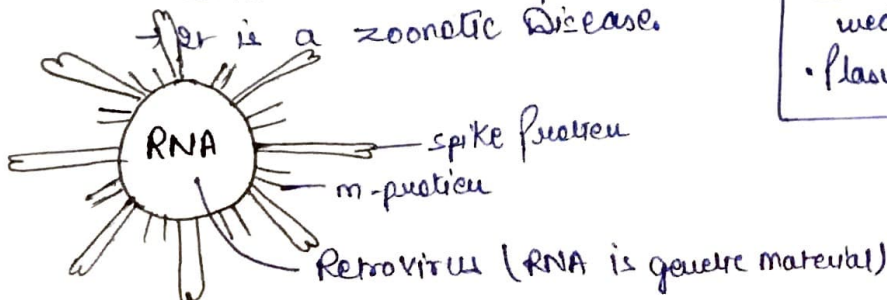 → It is a zoonotic Disease.
RNA
spike Protien
m-protien
Retrovirus (RNA is genetic material)